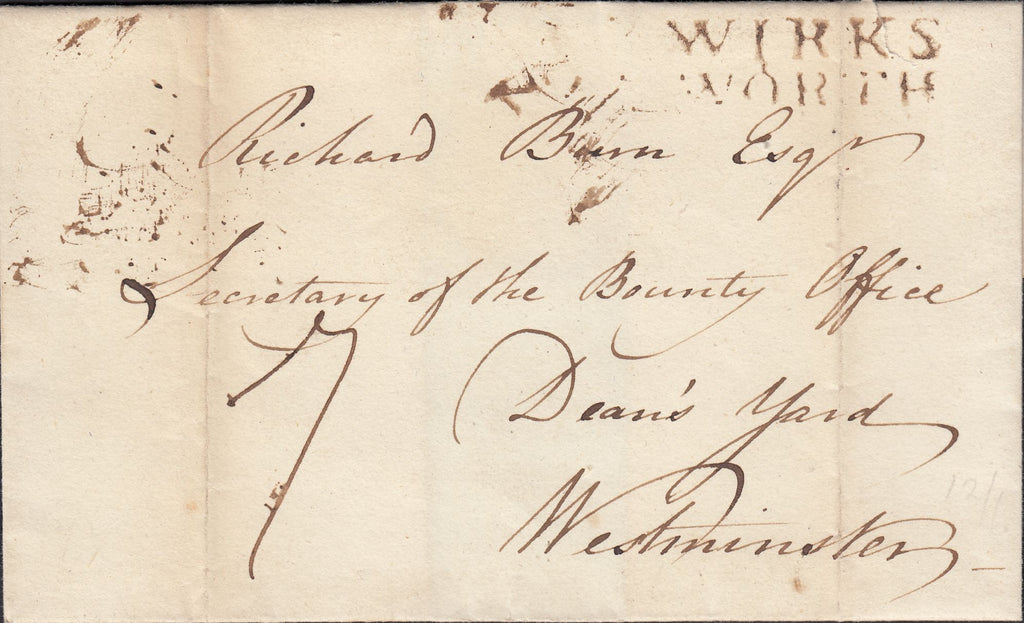 WIRKS
WORTH
Richard Burn Esqr
Secretary of the Bounty Office
7
Dean's Yard
Westminster